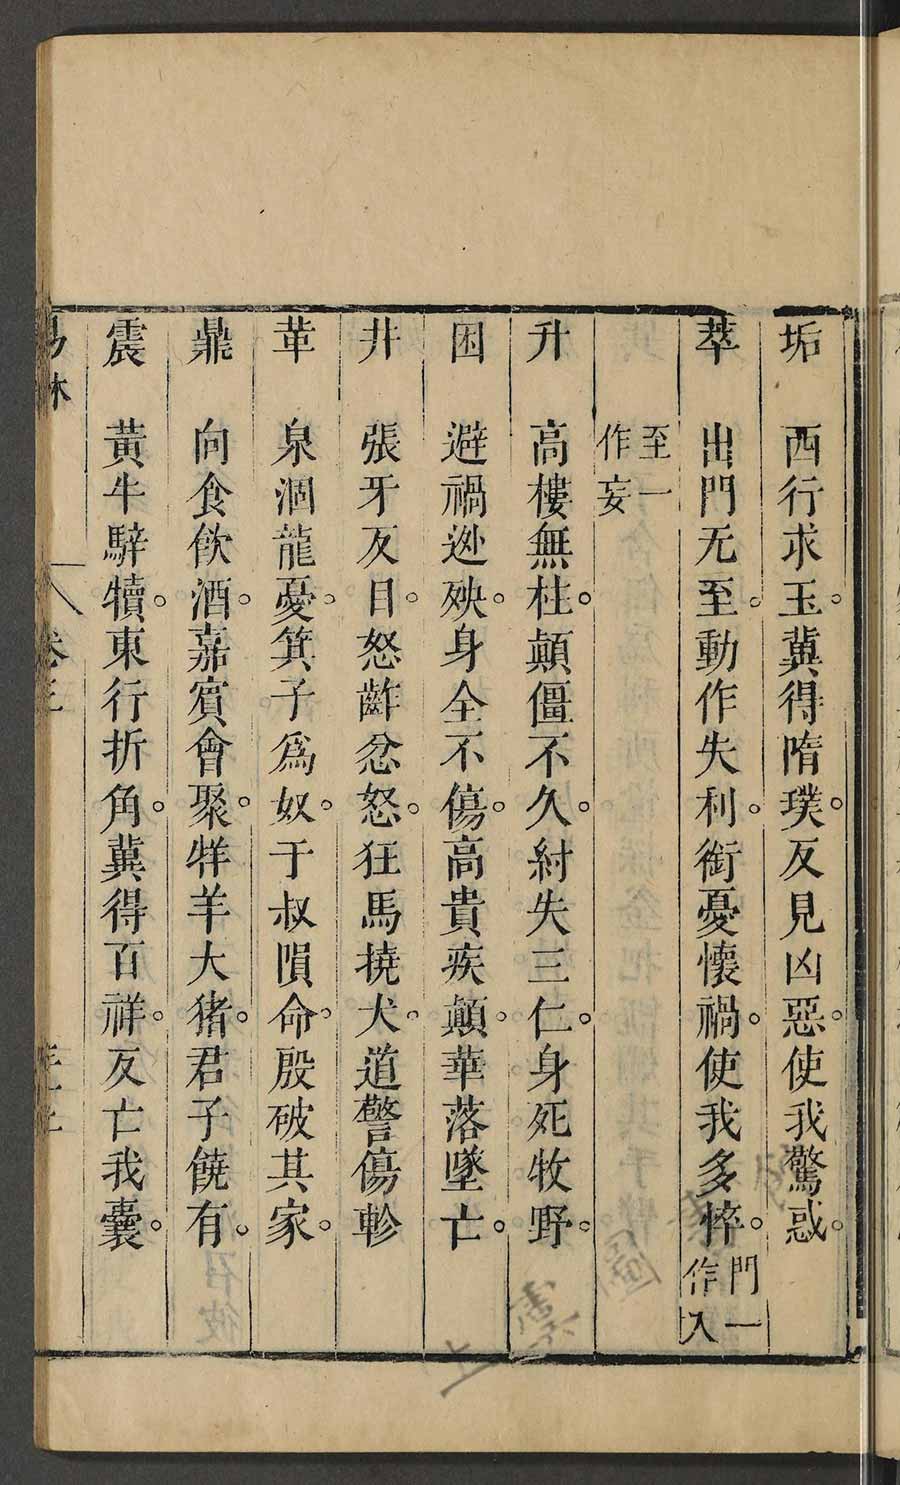 垢　西行求玉。冀得隋璞。反見凶惡。使我驚惑。
萃　出門无至。動作失利。銜憂懷禍。使我多悴。門一作入
至一作妄
升　高樓無柱。顛僵不久。紂失三仁。身死牧野。
困　避禍逃殃。身全不傷。高貴疾顛。華落墜亡。
井　張牙反目。怒齚忿怒。狂馬撓犬。道警傷軫
革　泉涸龍憂。箕子為奴。于叔隕命。殷破其家。
鼎　向食飲酒。嘉賓會聚。牂羊大猪。君子饒有。
震　黃牛騂犢。東行折角。冀得百祥。反亡我囊。
易林　卷三